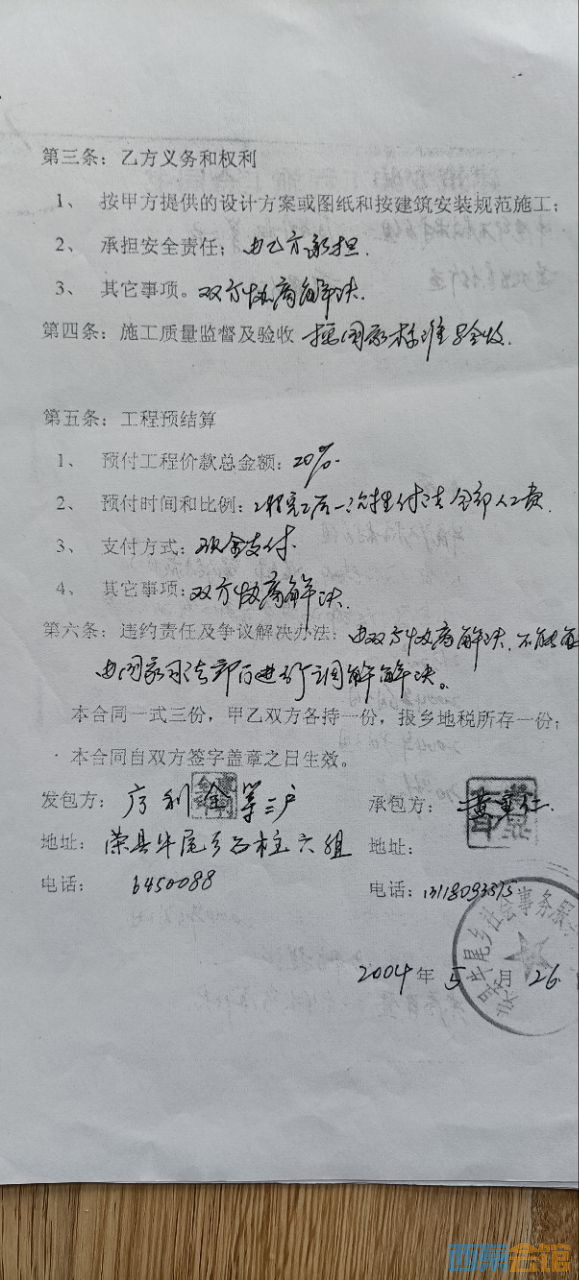 第三条：乙方义务和权利
1、 按甲方提供的设计方案或图纸和按建筑安装规范施工；
2、 承担安全责任；由乙方承担.
3、 其它事项。双方协商解决.
第四条：施工质量监督及验收 按国家标准验收.
第五条：工程预结算
1、 预付工程价款总金额：20%.
2、 预付时间和比例：工程完工后一次性付清全部人工费.
3、 支付方式：现金支付.
4、 其它事项：双方协商解决.
第六条：违约责任及争议解决办法：由双方协商解决.不能
由国家司法部门进行调解解决。
本合同一式三份，甲乙双方各持一份，报乡地税所存一份；
本合同自双方签字盖章之日生效。
发包方： 利金等三户 承包方：
地址：荣县牛尾乡石柱六组 地址：
电话： 6450088 电话：
2004年5月26
牛尾乡社会事务
西票会馆